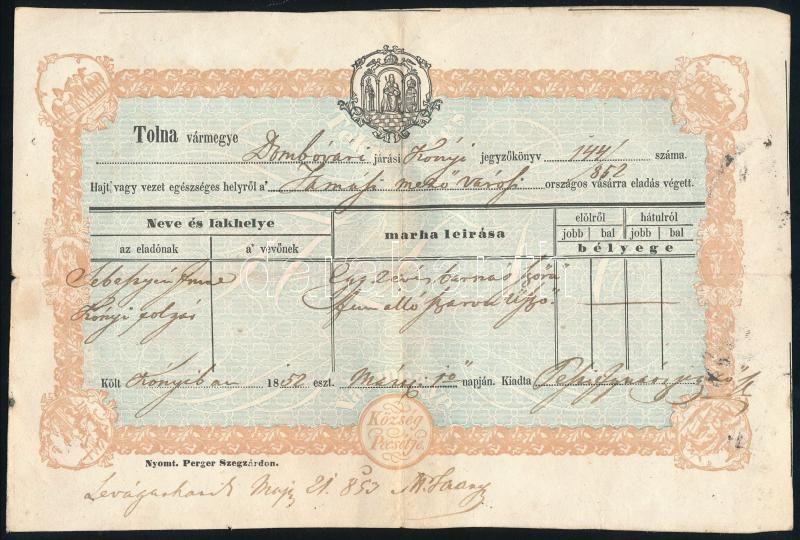 Tolna vármegye
Dombóvári járási Kónyi jegyzőkönyv 144/852 száma.
Hajt vagy vezet egészséges helyről a' Tamási mező városi országos vásárra eladás végett.
Neve és lakhelye marha leirása elölről hátulról
az eladónak a' vevőnek jobb bal jobb bal
bélyege
Egy 2 évis barnás szőrü
Kónyi polgár álló szarvu Üsző
Költ Kónyiban 1852 eszt. napján. Kiadta
Község
Pecsétje
Nyomt. Perger Szegzárdon.
21. 853